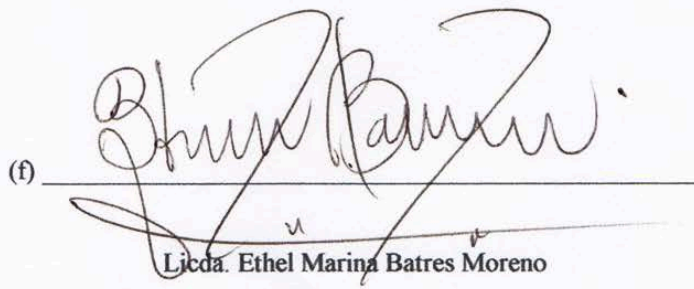 (f)
Licda. Ethel Marina Batres Moreno